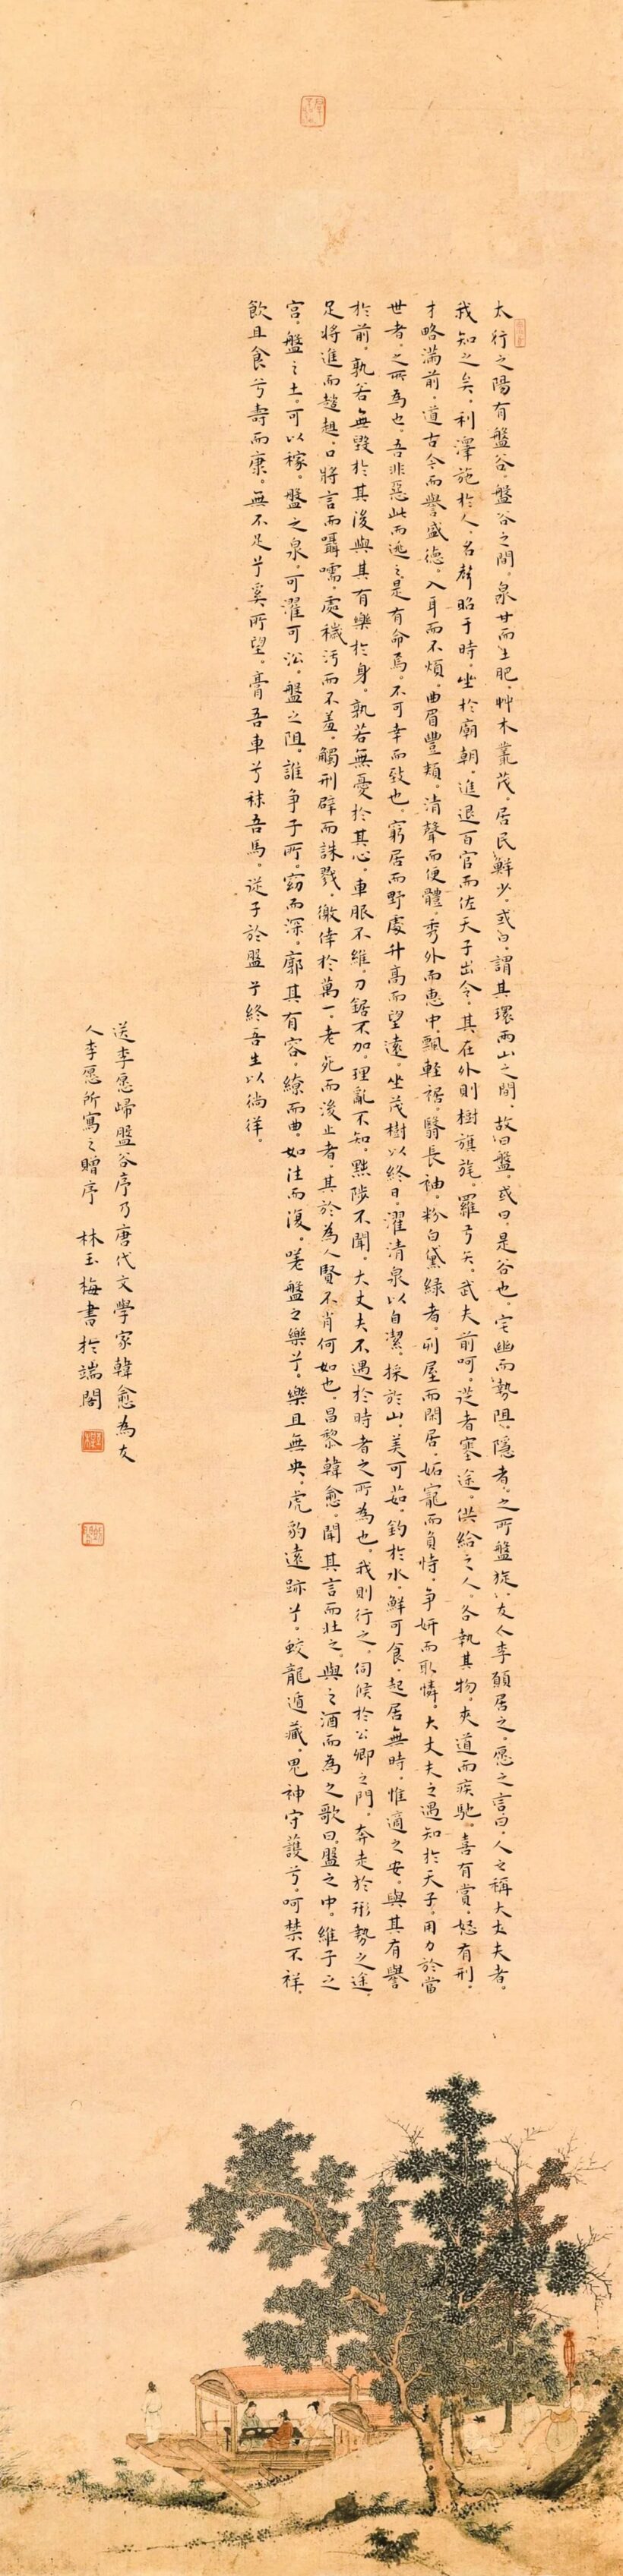 太行之陽有盤谷。盤谷之間。泉甘而土肥。艸木藂茂。居民鮮少。或曰。謂其環兩山之間。故曰盤。或曰。是谷也。宅幽而勢阻。隱者。之所盤旋。友人李願居之。愿之言曰。人之稱大丈夫者。
我知之矣。利澤施於人。名聲昭于時。坐於廟朝。進退百官而佐天子出令。其在外則樹旗旄。羅弓矢。武夫前呵。從者塞途。供給之人。各執其物。夾道而疾馳。喜有賞。怒有刑。
才略滿前。道古今而譽盛德。入耳而不煩。曲眉豐頰。清聲而便體。秀外而惠中。飄輕裾。翳長袖。粉白黛綠者。列屋而閑居。妬寵而負恃。争妍而取憐。大丈夫之遇知於天子。用力於當
世者。之所為也。吾非惡此而逃之。是有命焉。不可幸而致也。窮居而野處。升高而望遠。坐茂樹以終日。濯清泉以自潔。採於山。美可茹。釣於水。鮮可食。起居無時。惟適之安。與其有譽
於前。孰若無毀於其後。與其有樂於身。孰若無憂於其心。車服不維。刀鋸不加。理亂不知。黜陟不聞。大丈夫不遇於時者之所為也。我則行之。伺候於公卿之門。奔走於形勢之途。
足將進而趑趄。口將言而囁嚅。處穢污而不羞。觸刑辟而誅戮。徼倖於萬一。老死而後止者。其於為人賢不肖何如也。昌黎韓愈。聞其言而壯之。與之酒而為之歌曰。盤之中。維子之
宮。盤之土。可以稼。盤之泉。可濯可沿。盤之阻。誰争子所。窈而深。廓其有容。繚而曲。如往而復。嗟盤之樂兮。樂且無央。虎豹遠跡兮。蛟龍遁藏。鬼神守護兮。呵禁不祥。
飲且食兮壽而康。無不足兮奚所望。膏吾車兮秣吾馬。從子於盤兮終吾生以徜徉。
送李愿歸盤谷序乃唐代文學家韓愈為友
人李愿所寫之贈序 林玉梅書於端閣